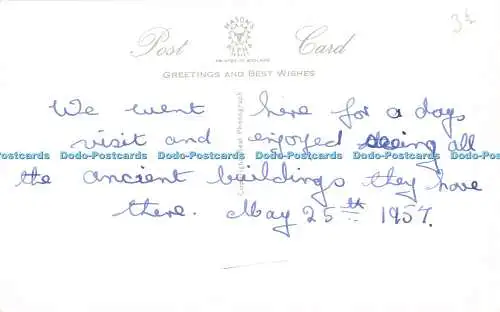 3½
MASON'S
ALPHA
Post Card
PRINTED IN ENGLAND
GREETINGS AND BEST WISHES
We went here for a days
visit and enjoyed seeing all
Postcards Dodo-Postcards Dodo-Postcards Dodo-Postcards Dodo-Postcards Dodo-
the ancient buildings they have
there. May 25th 1957.
Photograph